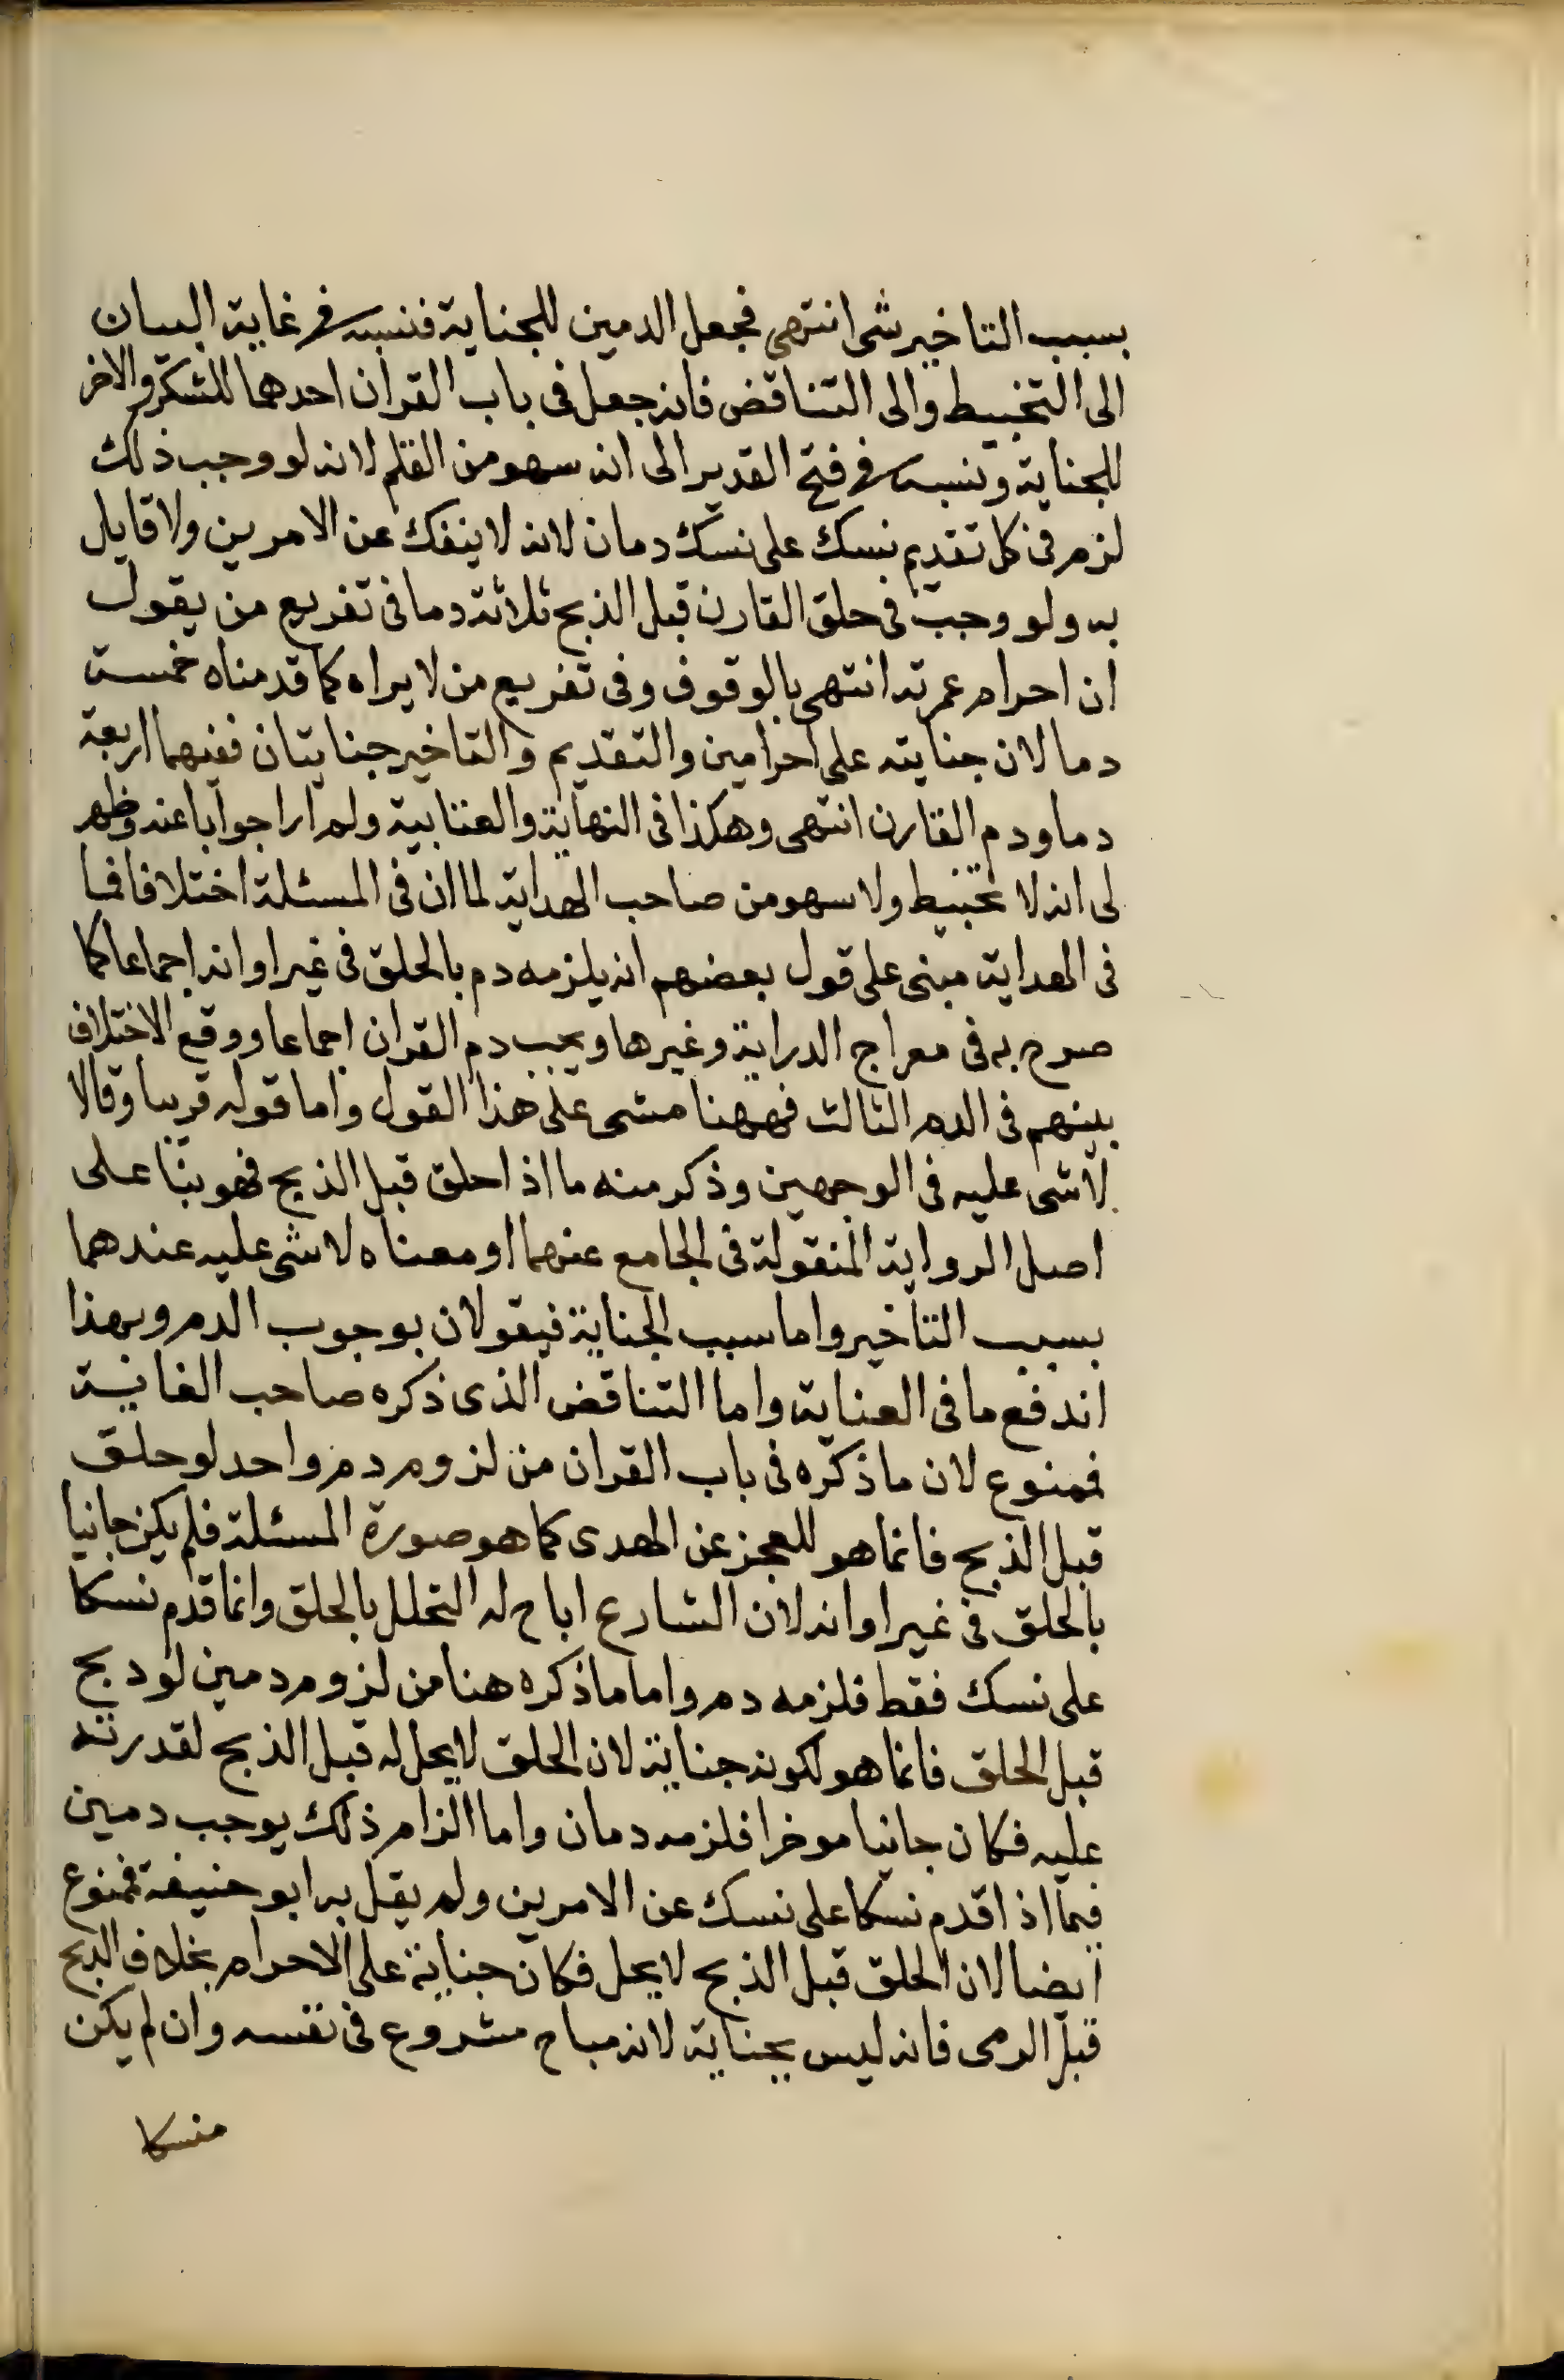 بسبب التاخير شى انتهى فجعل الدمين للجناية فنسبه فى غاية البيان
الى التخبيط والى التناقض فانه جعل فى باب القران احدهما للشكر والاخر
للجناية ونسبه فى فتح القدير الى انه سهو من القلم لانه لو وجب ذلك
لزم فى كل تقديم نسك على نسك دمان لانه لا ينفك عن الامرين ولا قايل
به ولو وجب فى حلق القارن قبل الذبح ثلاثة دما فى تفريع من يقول
ان احرام عمرته انتهى بالوقوف وفى تفريع من لا يراه كما قدمناه خمسة
دما لان جنايته على احرامين والتقديم والتاخير جنايتان ففيهما اربعة
دما ودم القارن انتهى وهكذا فى النهاية والعناية ولم ارا جوابا عنه وظهر
لى انه لا تخبيط ولا سهو من صاحب الهداية لما ان فى المسئلة اختلافا فما
فى الهداية مبنى على قول بعضهم انه يلزمه دم بالحلق فى غير اوانه اجماعا كما
صرح به فى معراج الدراية وغيرها ويجب دم القران اجماعا ووقع الاختلاف
بينهم فى الدم الثالث فههنا مشى على هذا القول واما قوله قريبا وقالا
لا شى عليه فى الوجهين وذكر منه ما اذا حلق قبل الذبح فهو بنا على
اصل الرواية المنقولة فى الجامع عنهما او معناه لا شى عليه عندهما
بسبب التاخير واما سبب الجناية فيقولان بوجوب الدم وبهذا
اندفع ما فى العناية واما التناقض الذى ذكره صاحب الغاية
فممنوع لان ما ذكره فى باب القران من لزوم دم واحد لو حلق
قبل الذبح فانما هو للعجز عن الهدى كما هو صورة المسئلة فلم يكن جانيا
بالحلق فى غير اوانه لان الشارع اباح له التحلل بالحلق وانما قدم نسكا
على نسك فقط فلزمه دم واما ما ذكره هنا من لزوم دمين لو ذبح
قبل الحلق فانما هو لكونه جناية لان الحلق لا يحل له قبل الذبح لقدرته
عليه فكان جانيا موخرا فلزمه دمان واما الزام ذلك يوجب دمين
فيما اذا قدم نسكا على نسك عن الامرين ولم يقل به ابو حنيفة فممنوع
ايضا لان الحلق قبل الذبح لا يحل فكان جناية على الاحرام بخلاف الذبح
قبل الرمى فانه ليس بجناية لانه مباح مشروع فى نفسه وان لم يكن
منسكا